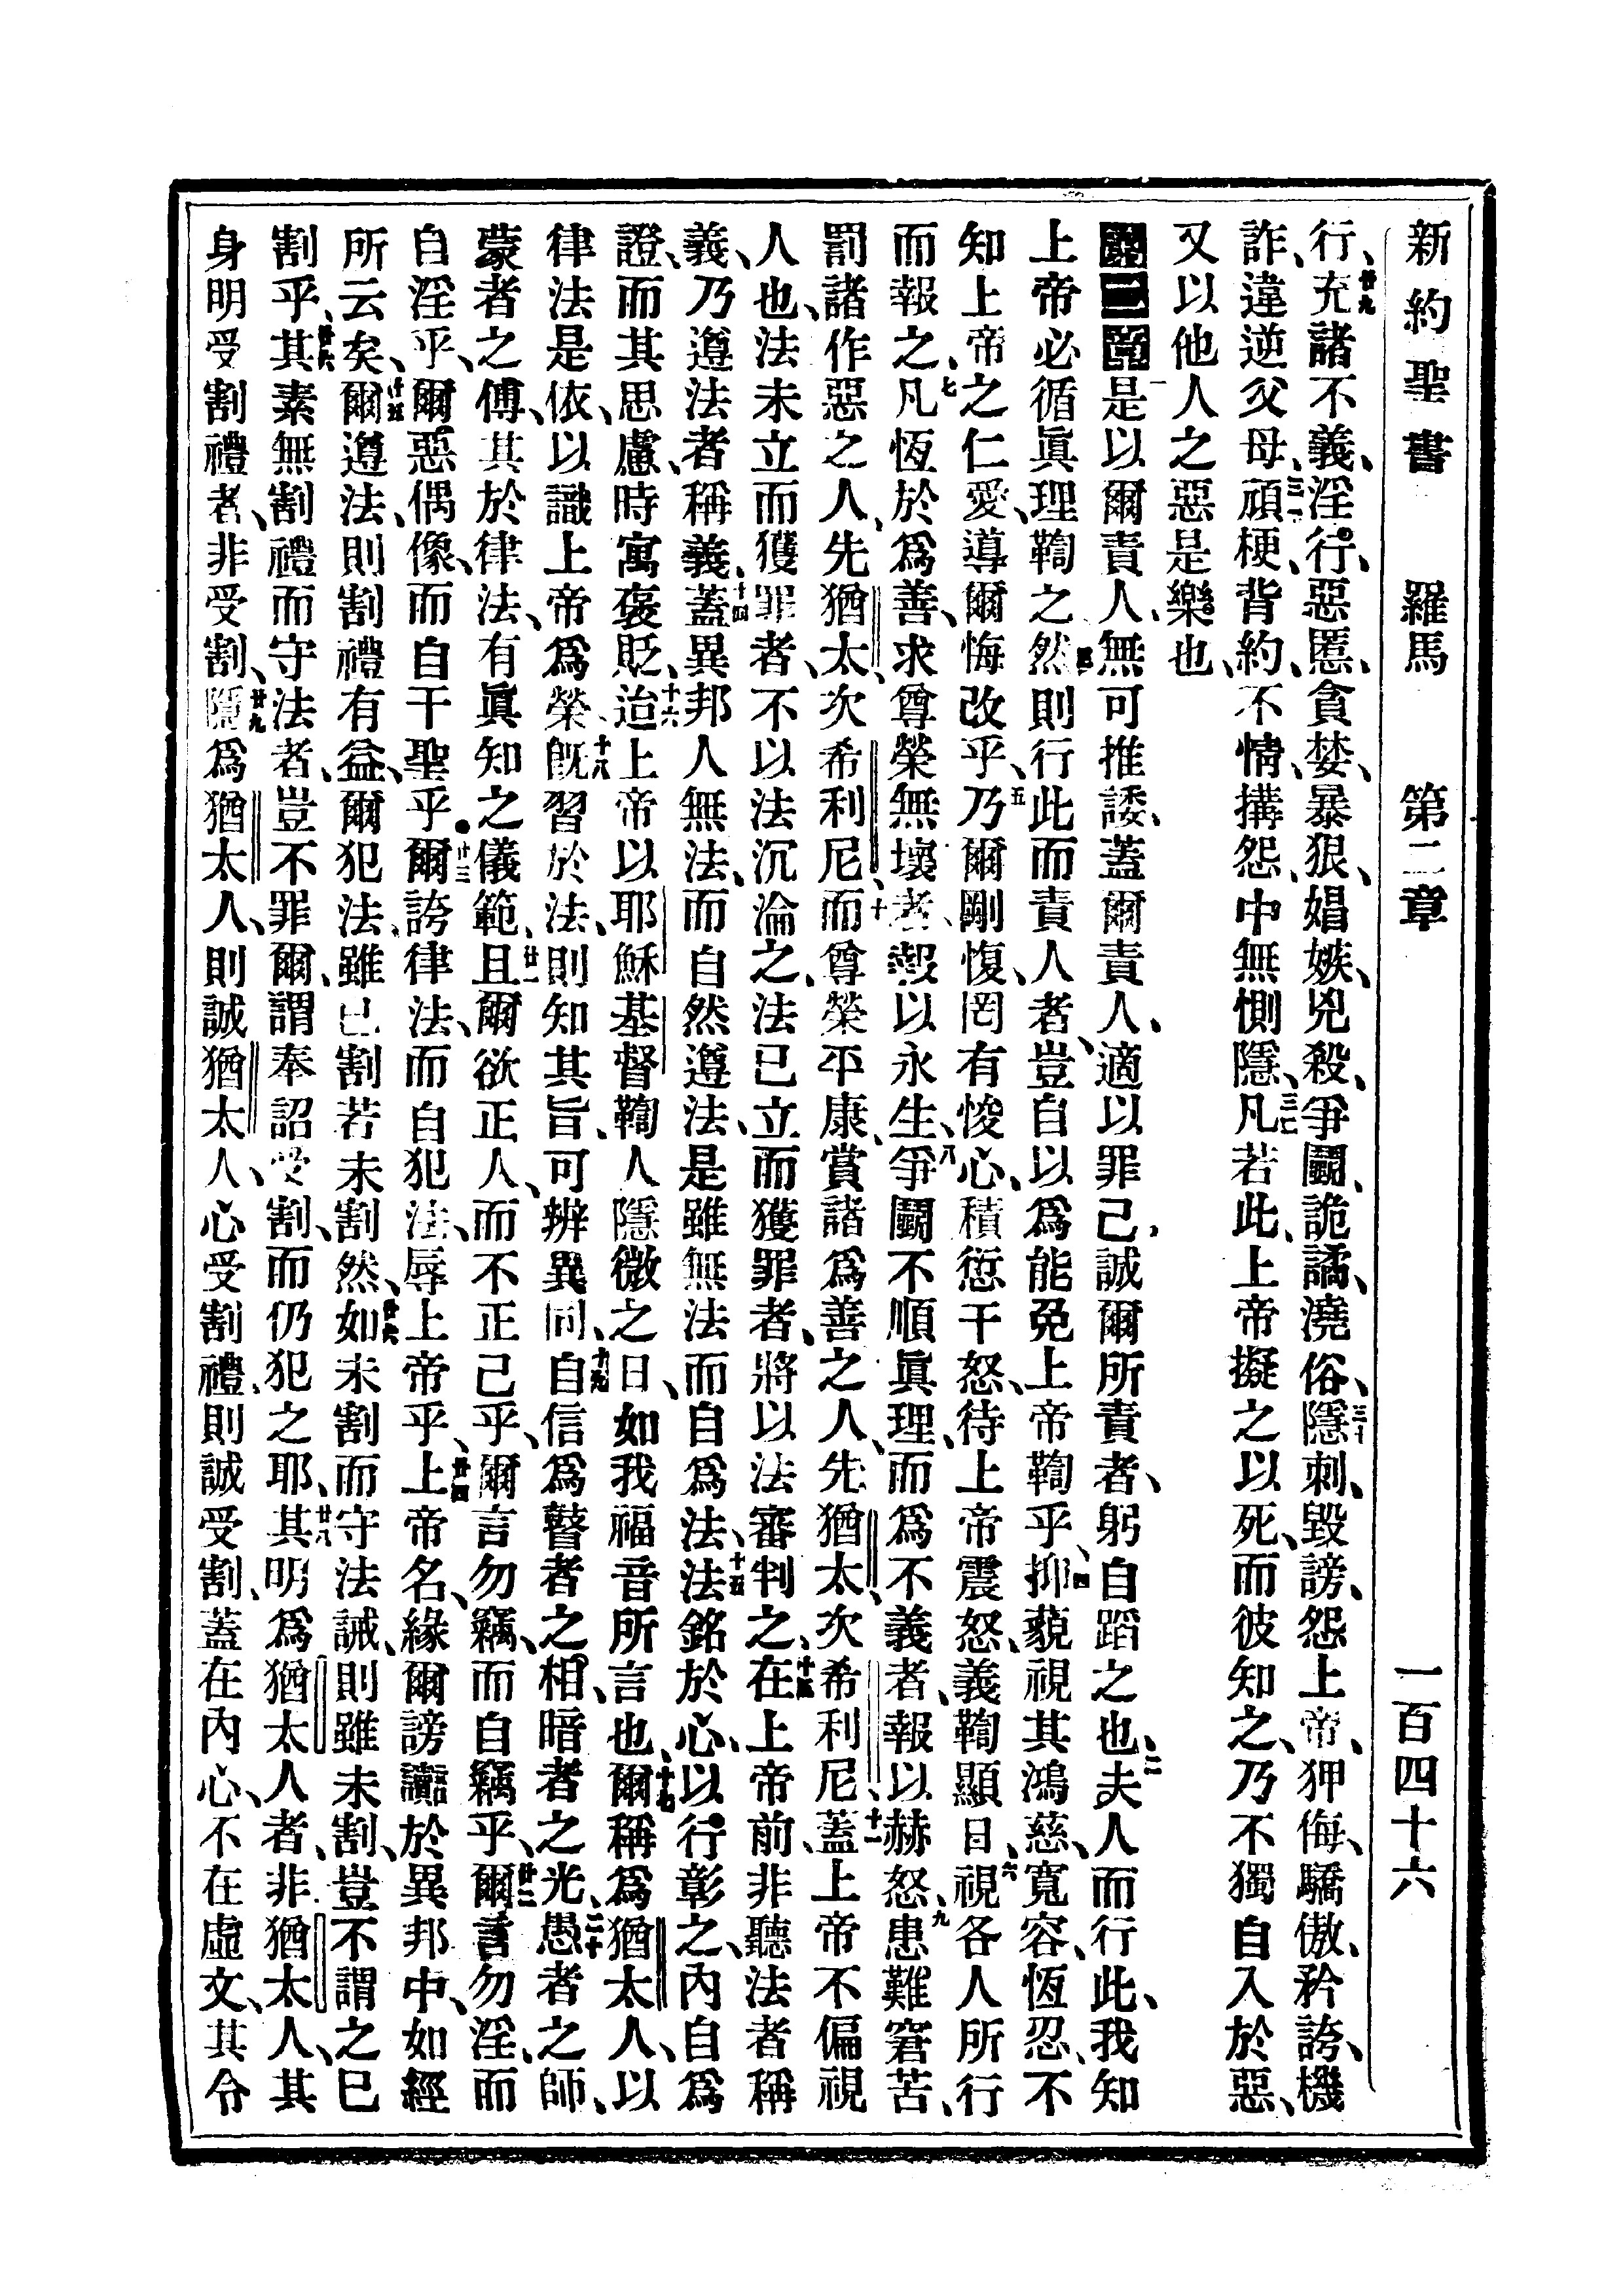 新約聖書 羅馬 第二章 一百四十六
行、廿九充諸不義、淫行、惡慝、貪婪、暴狠、娼嫉、兇殺、爭鬭、詭譎、澆俗、三十隱刺、毀謗、怨上帝、狎侮、驕傲、矜誇、機
詐、違逆父母、三一頑梗、背約、不情、搆怨、中無惻隱、三二凡若此、上帝擬之以死、而彼知之、乃不獨自入於惡、
又以他人之惡是樂也、
第二章一是以爾責人、無可推諉、蓋爾責人、適以罪己、誠爾所責者、躬自蹈之也、二夫人而行此、我知
上帝必循眞理鞫之、三然則行此而責人者、豈自以爲能免上帝鞫乎、四抑藐視其鴻慈、寬容、恆忍、不
知上帝之仁愛、導爾悔改乎、五乃爾剛愎、罔有悛心、積愆干怒、待上帝震怒、義鞫顯日、六視各人所行
而報之、七凡恆於爲善、求尊榮無壞者、報以永生、八爭鬭不順眞理、而爲不義者、報以赫怒、九患難窘苦、
罰諸作惡之人、先猶太、次希利尼、十而尊榮平康、賞諸爲善之人、先猶太、次希利尼、十一蓋上帝不偏視
人也、法未立而獲罪者、不以法沉淪之、法已立而獲罪者、將以法審判之、十三在上帝前、非聽法者稱
義、乃遵法者稱義、十四蓋異邦人無法、而自然遵法、是雖無法而自爲法、十五法銘於心、以行彰之、內自爲
證、而其思慮、時寓褒貶、十六迨上帝以耶穌基督鞫人隱微之日、如我福音所言也、十七爾稱爲猶太人、以
律法是依、以識上帝爲榮、十八旣習於法、則知其旨、可辨異同、十九自信爲瞽者之相、暗者之光、二十愚者之師、
蒙者之傅、其於律法、有眞知之儀範、廿一且爾欲正人、而不正己乎、爾言勿竊、而自竊乎、廿二爾言勿淫、而
自淫乎、爾惡偶像、而自干聖乎、廿三爾誇律法、而自犯法、辱上帝乎、廿四上帝名、緣爾謗讟於異邦中、如經
所云矣、廿五爾遵法、則割禮有益、爾犯法、雖已割若未割然、廿六如未割而守法誡、則雖未割、豈不謂之已
割乎、廿七其素無割禮而守法者、豈不罪爾、謂奉詔受割、而仍犯之耶、廿八其明爲猶太人者、非猶太人、其
身明受割禮者、非受割、廿九隱爲猶太人、則誠猶太人、心受割禮、則誠受割、蓋在內心、不在虛文、其令